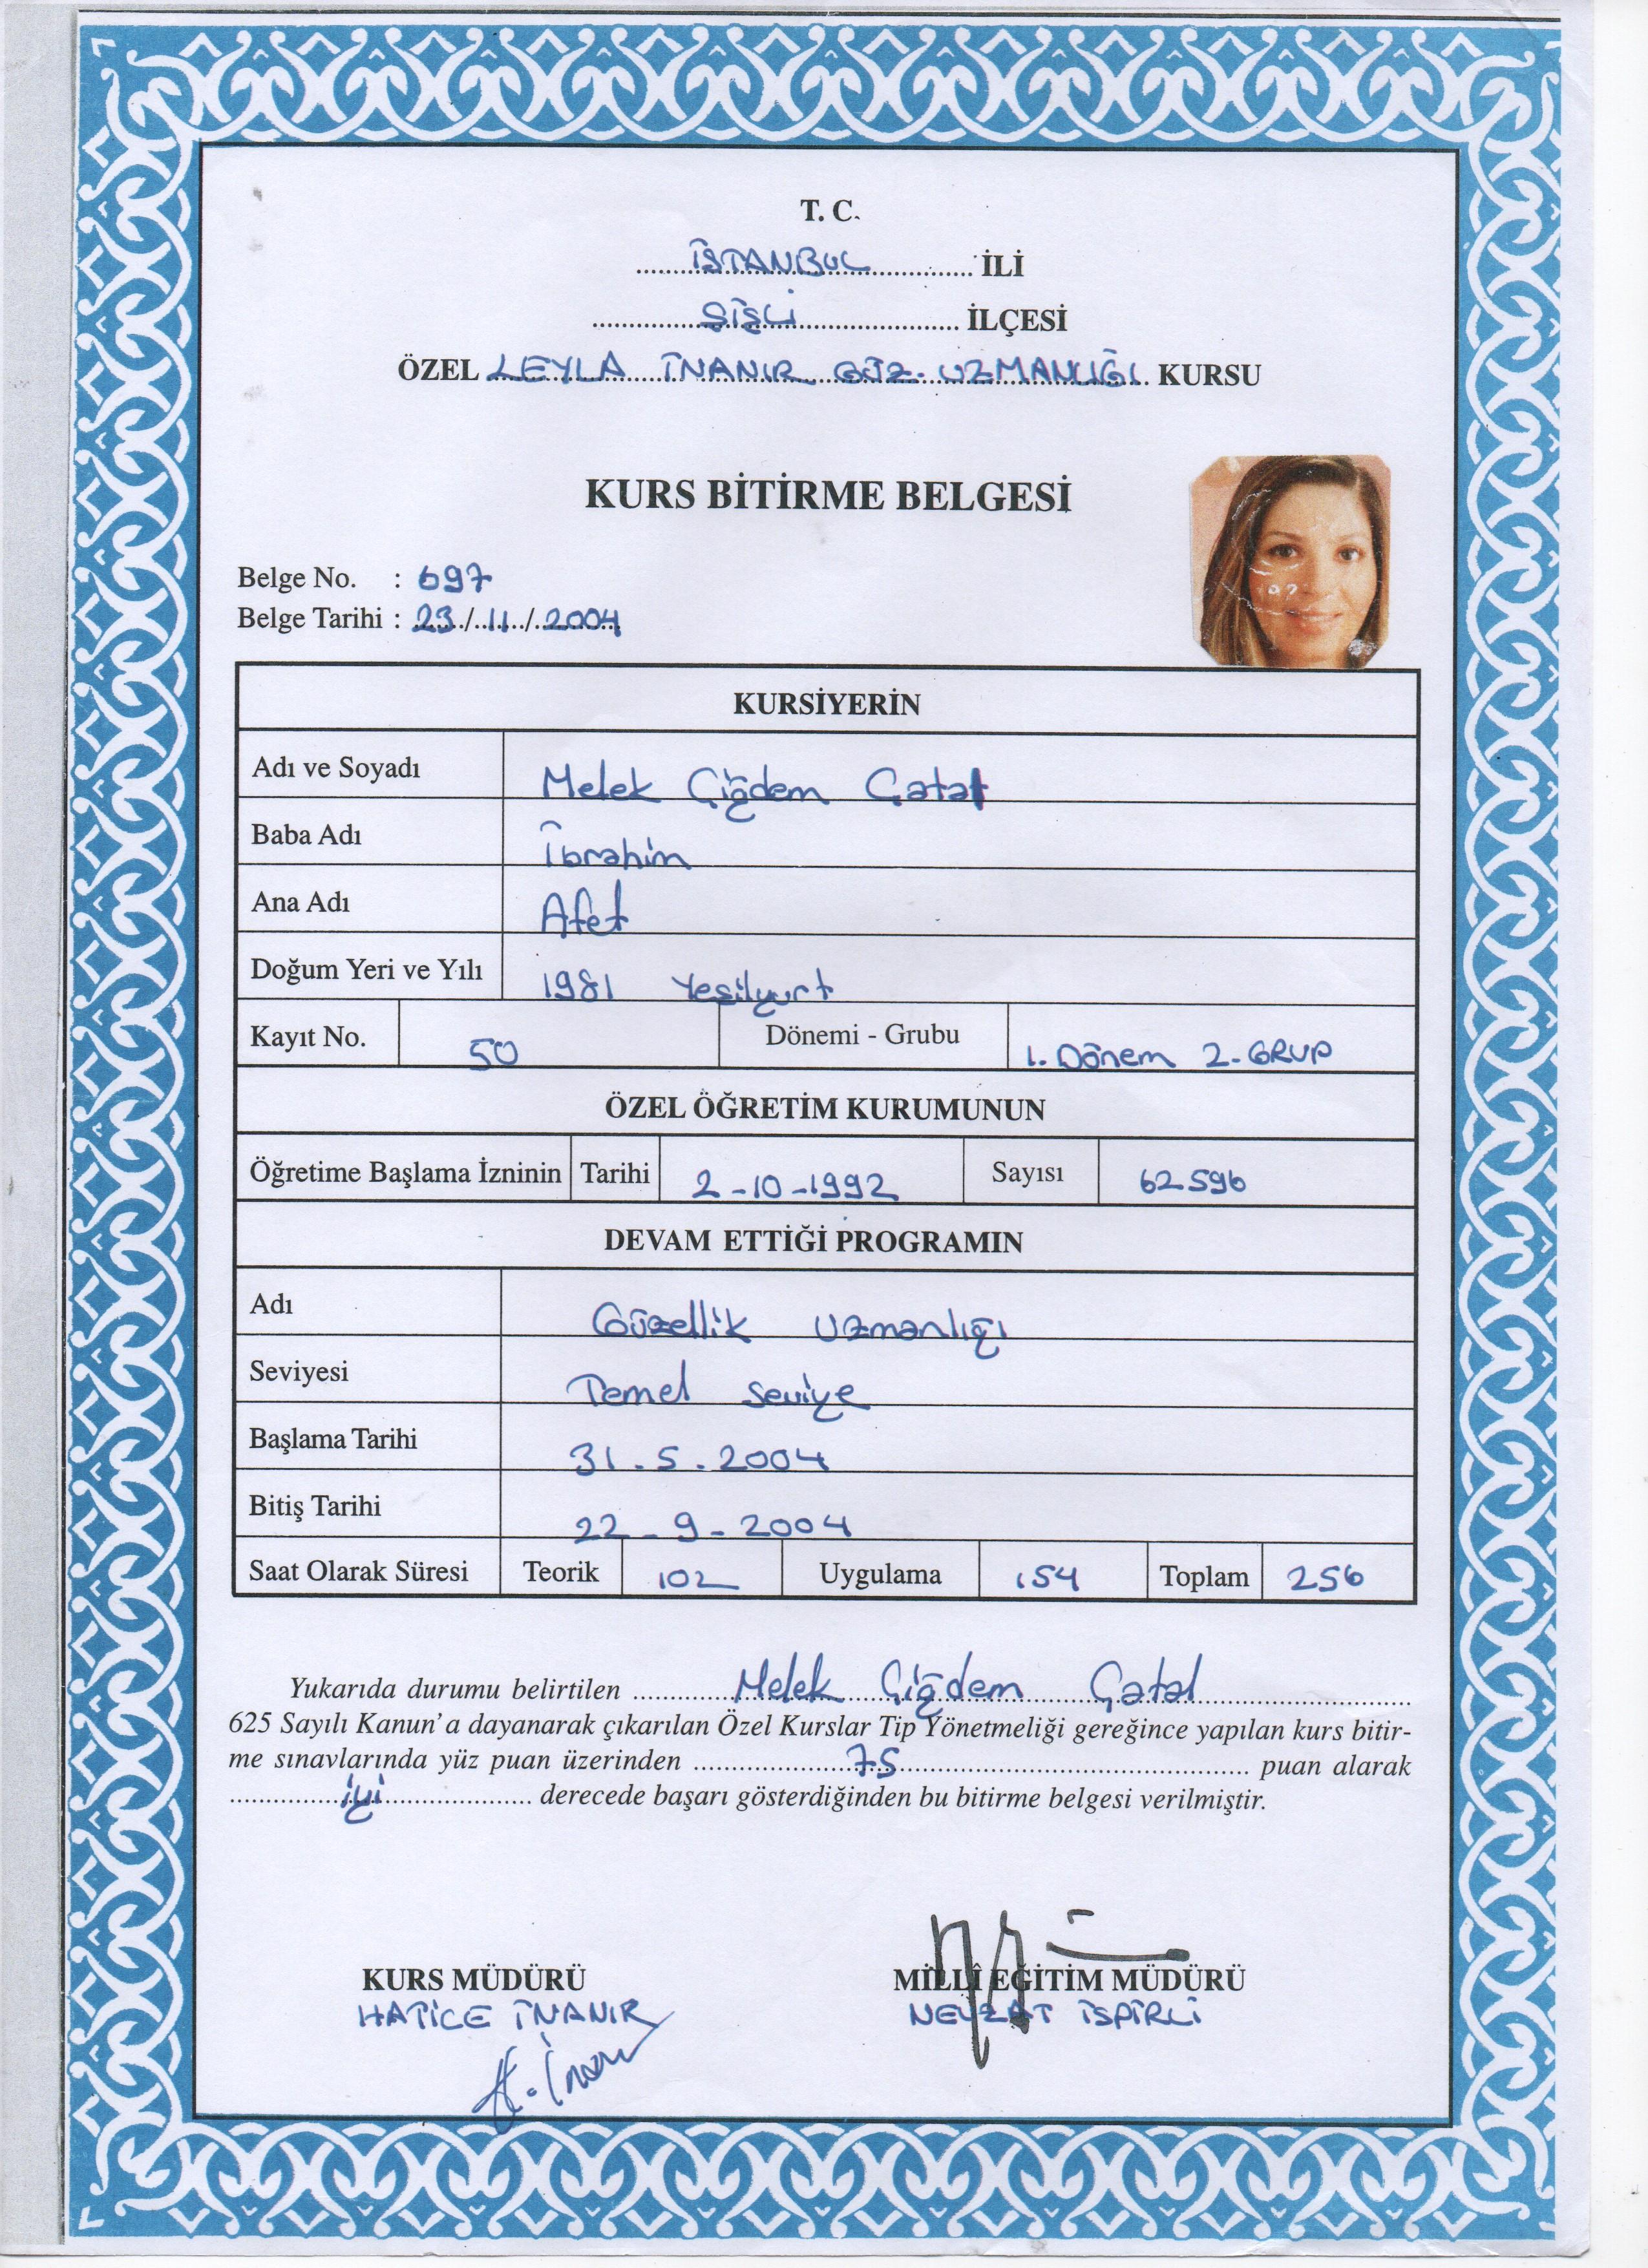 T. C.
İSTANBUL İLİ
ŞİŞLİ İLÇESİ
ÖZEL LEYLA İNANIR GÜZ. UZMANLIĞI KURSU
KURS BİTİRME BELGESİ
Belge No. : 697
Belge Tarihi : 23/11/2004
KURSİYERİN
Adı ve Soyadı Melek Çiğdem Çatal
Baba Adı İbrahim
Ana Adı Afet
Doğum Yeri ve Yılı 1981 Yeşilyurt
Kayıt No. 50 Dönemi - Grubu 1. Dönem 2. GRUP
ÖZEL ÖĞRETİM KURUMUNUN
Öğretime Başlama İzninin Tarihi 2-10-1992 Sayısı 62596
DEVAM ETTİĞİ PROGRAMIN
Adı Güzellik Uzmanlığı
Seviyesi Temel Seviye
Başlama Tarihi 31.5.2004
Bitiş Tarihi 22-9-2004
Saat Olarak Süresi Teorik 102 Uygulama 154 Toplam 256
Yukarıda durumu belirtilen Melek Çiğdem Çatal
625 Sayılı Kanun'a dayanarak çıkarılan Özel Kurslar Tip Yönetmeliği gereğince yapılan kurs bitir-
me sınavlarında yüz puan üzerinden 75 puan alarak
iyi derecede başarı gösterdiğinden bu bitirme belgesi verilmiştir.
KURS MÜDÜRÜ MİLLÎ EĞİTİM MÜDÜRÜ
HATİCE İNANIR NEVZAT İSPİRLİ